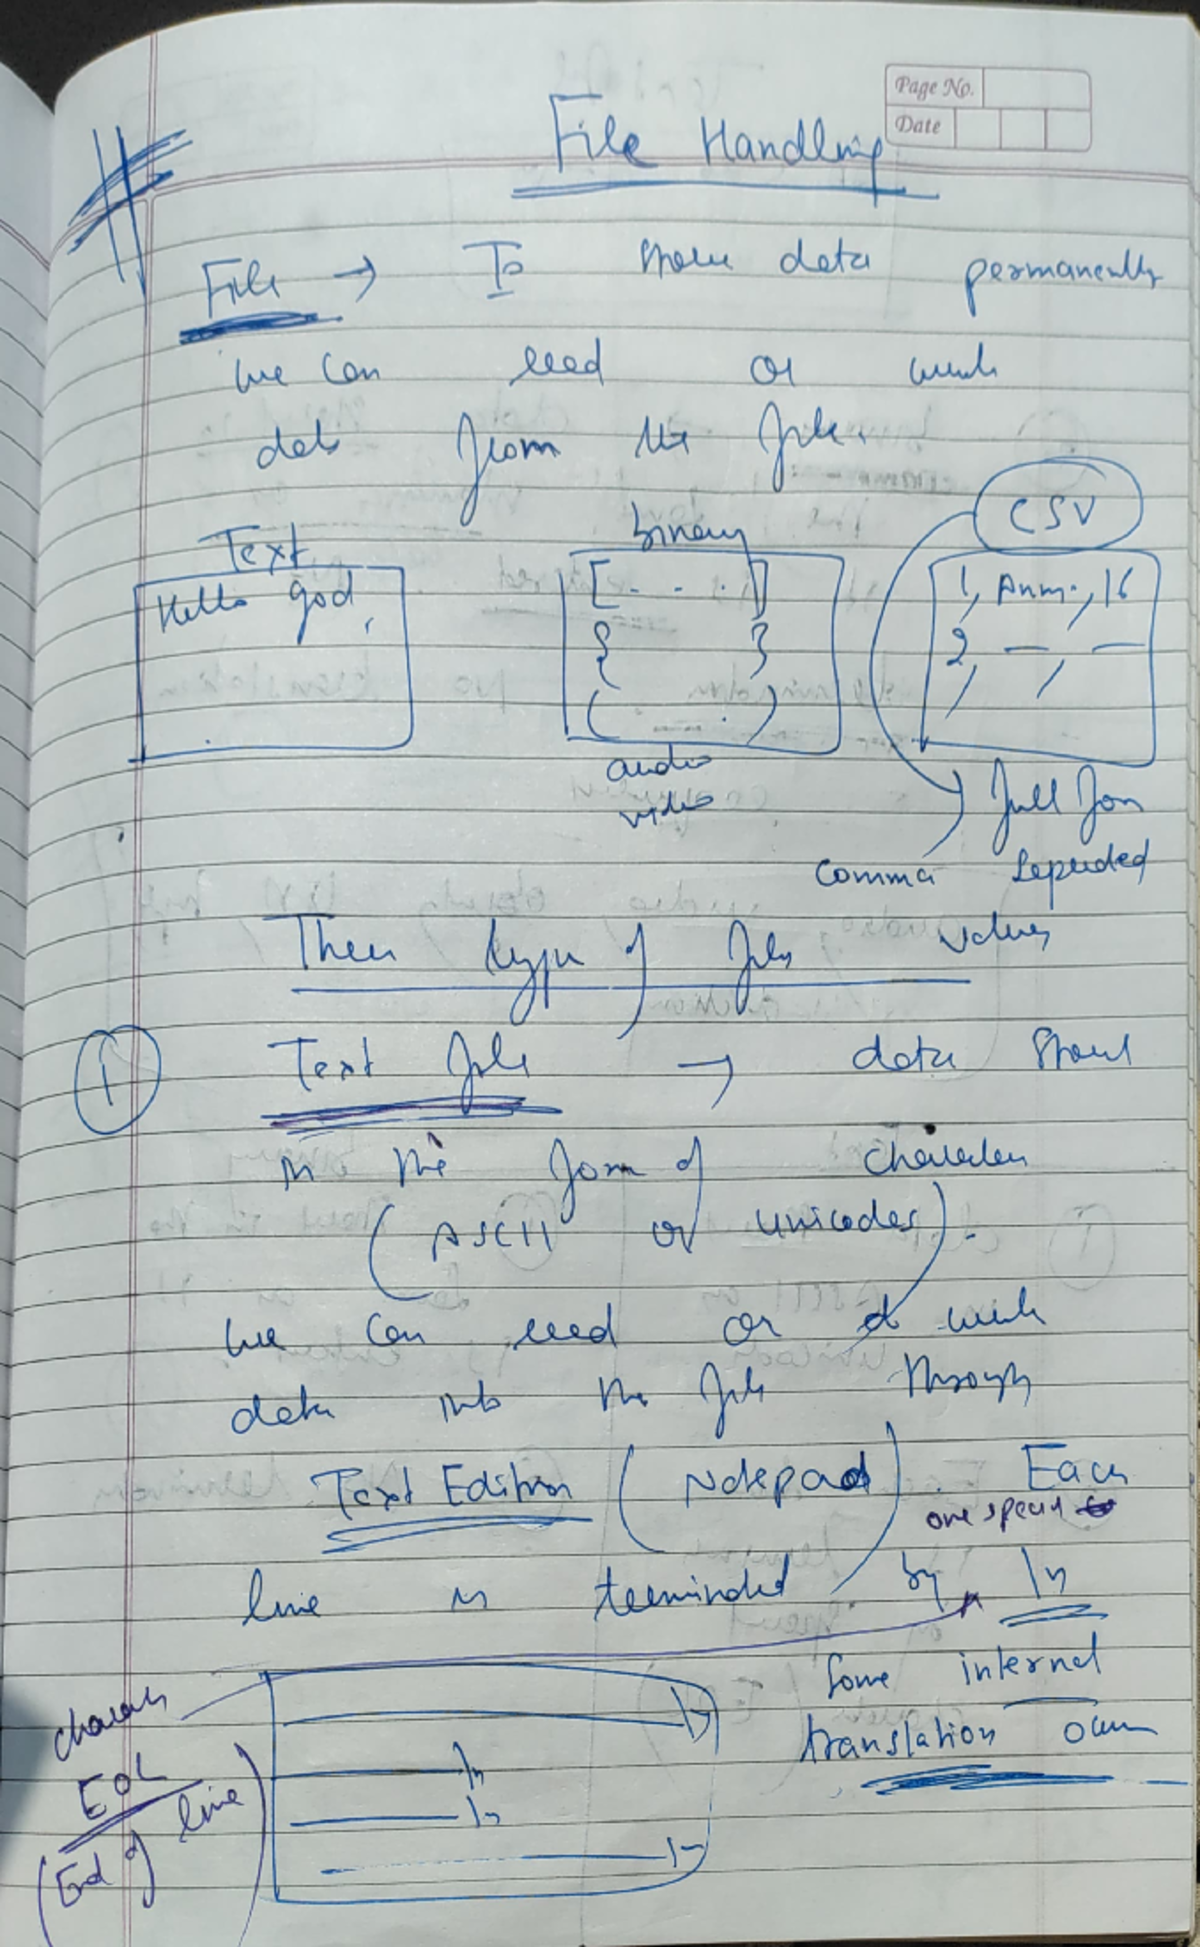 Page No.
Date
File Handling
File → To store data permanently
we can read or write
data from the file.
Text
Hello god,
binary
[- - .]
{ }
( . )
audio
video
CSV
1, Anm., 16
2, —, —
, ,
full form
comma Seperated
values
Three type of files
① Text file → data store
in the form of character
(ASCII or unicodes).
we can read or write
data into the file through
Text Editors (Notepad). Each
line is terminated by \n
one special
character
EOL
(End of line)
\n
\n
\n
\n
Some internal
translation occur